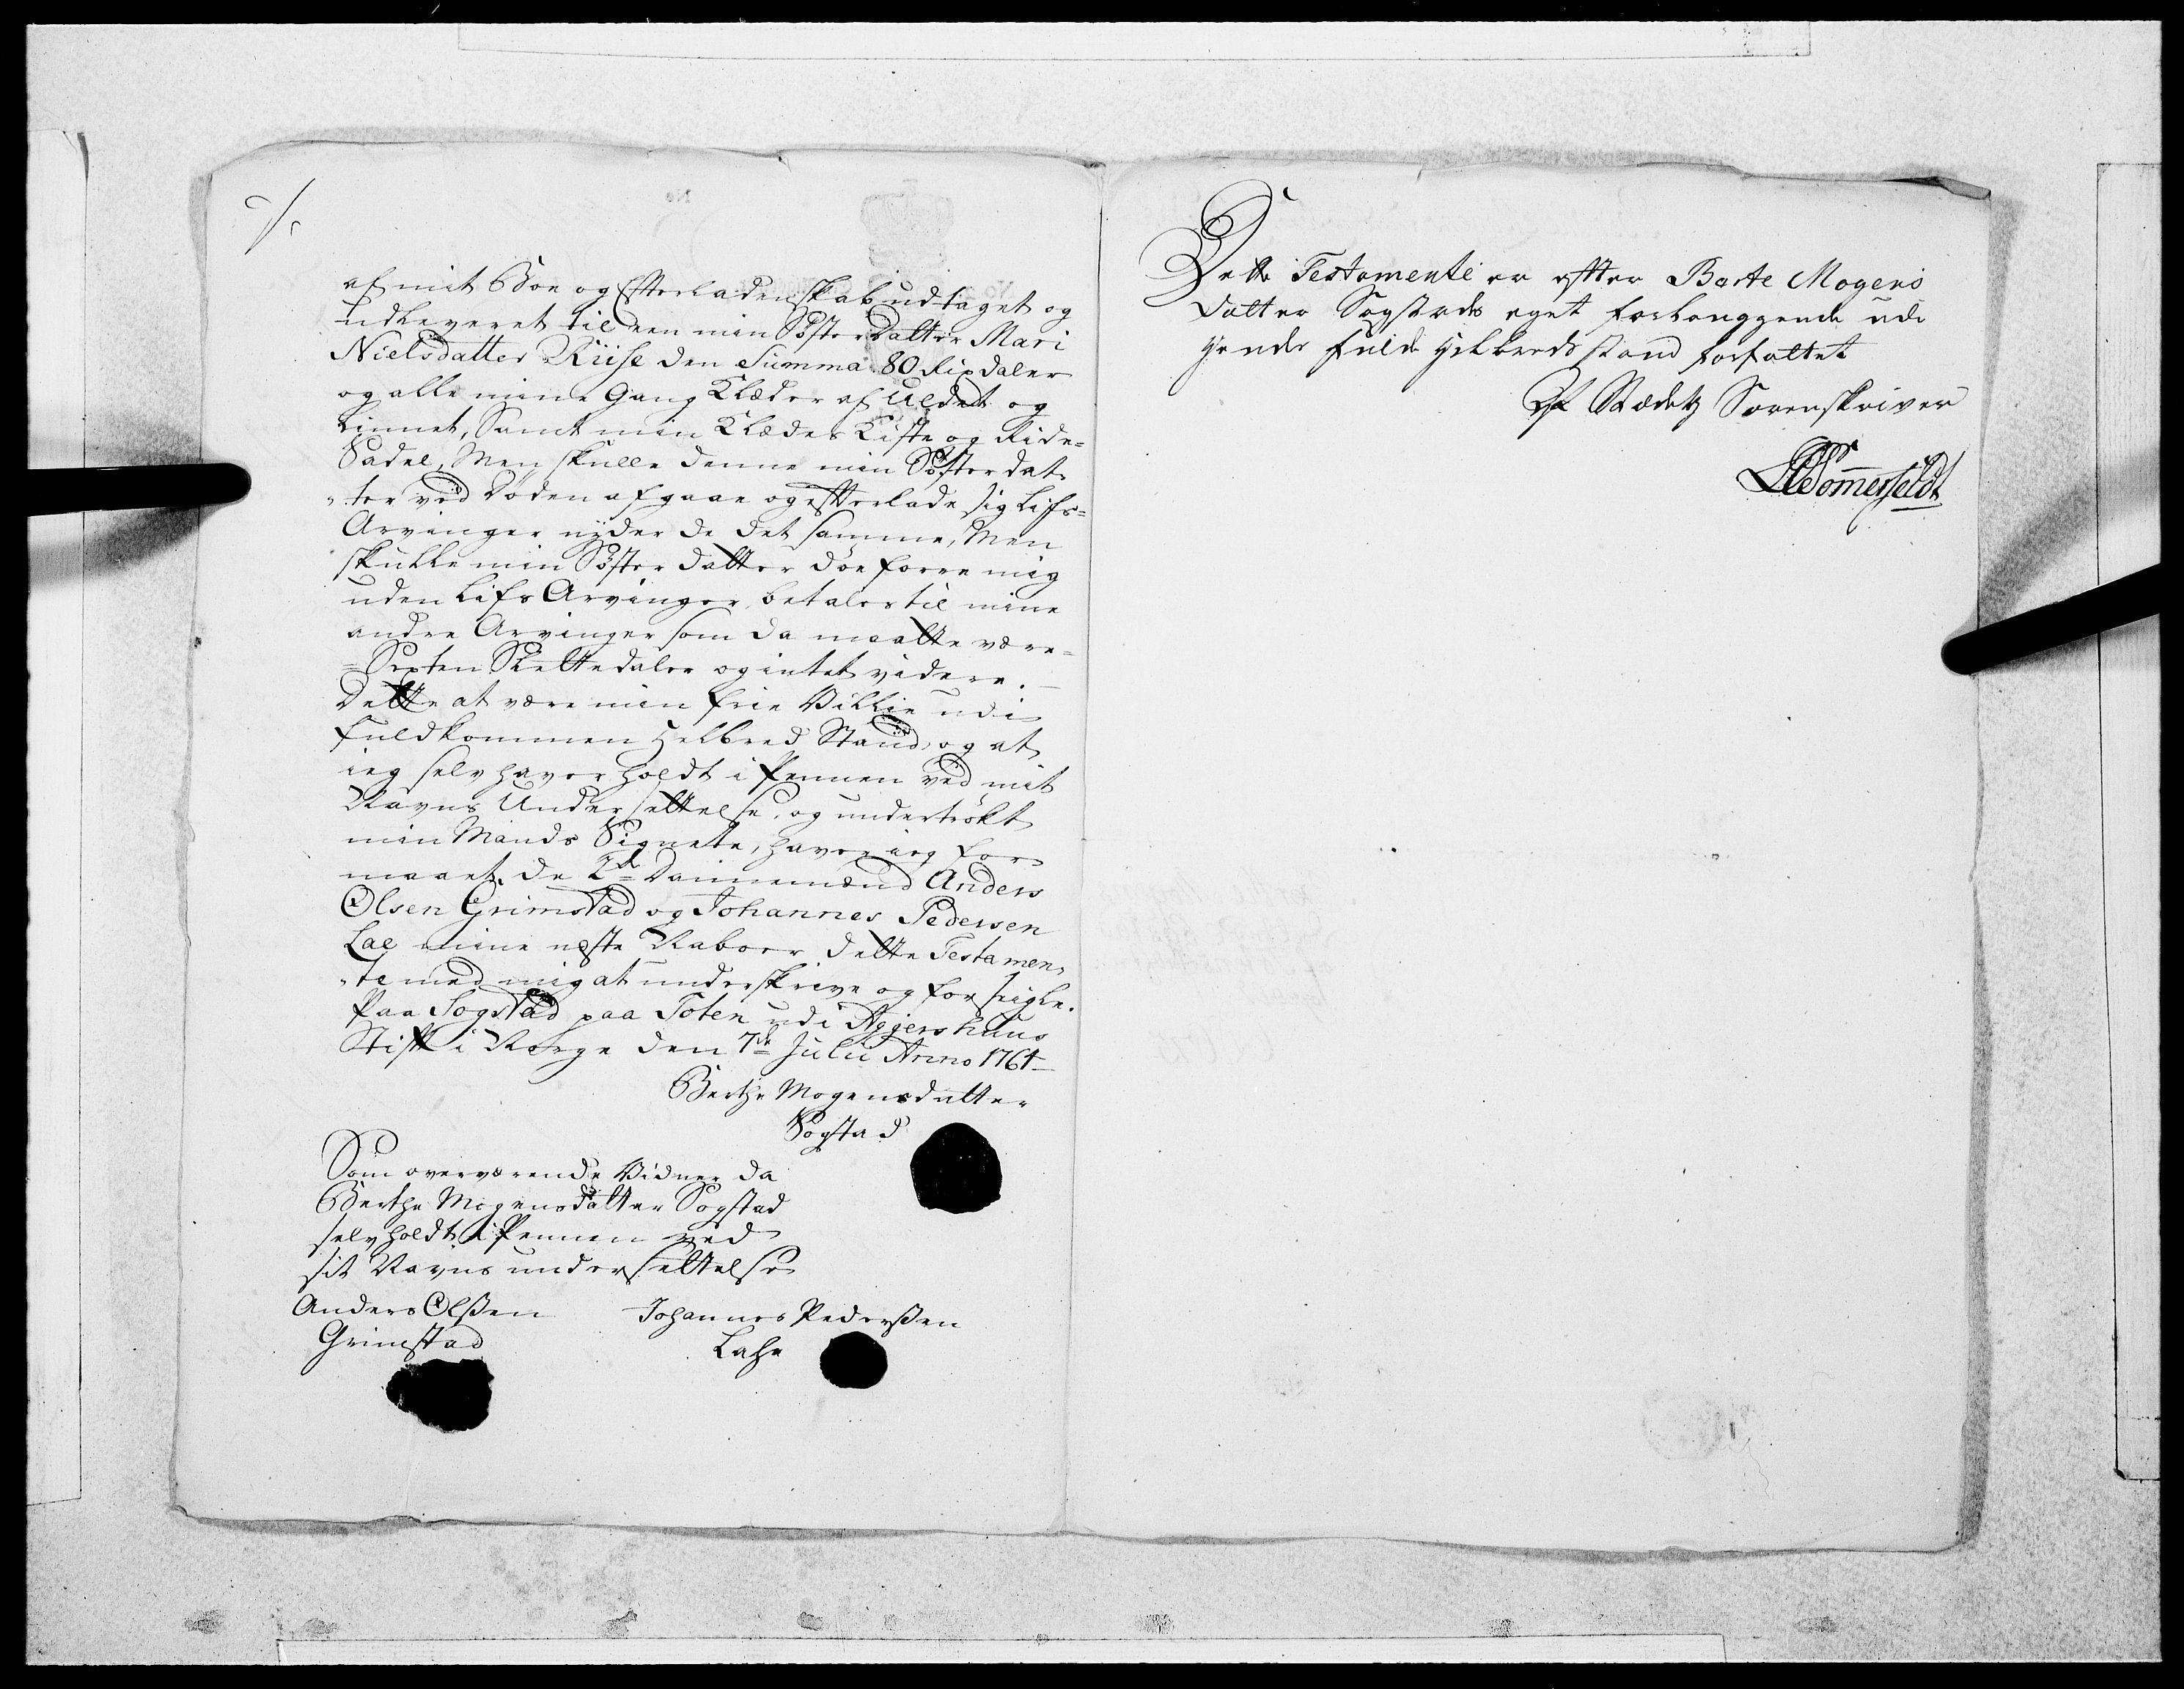 af mit Boe og Efterladenskab udtaget og
udleveret til een min Søster Datter Mari
Nielsdatter Ruise den Summa 80 Rixdaler
og alle mine Gang Klæder af Uldet og
Linnet, Samt min Klædes Kiste og Ride-
Sadel, Men skulle denne min Søster dat-
-ter ved Døden afgaae og efterlade sig Lifs-
Arvinger nyder de det samme, Men
skulle min Søster datter døe førre mig
uden Lifs Arvinger, betales til mine
andre Arvinger som da maatte være-
=Sexten Slettedaler og intet videre.
Dette at være min frie Villie udi
fuldkommen Helbred Stand, og at
ieg selv haver holdt i Pennen ved mit
Navns Undersettelse, og undertrökt
min Mands Signete, haver ieg for
maaet de 2de Dannemænd Anders
Olsen Grimstad og Johannes Pedersen
Lae mine næste Naboer dette Testamen-
-te med mig at underskrive og forseigle.
Paa Sogstad paa Toten udi Aggershuus
Stift i Norge den 7de Julii Anno 1761
Berthe Mogensdatter
Sogstad
Som overværende Vidner da
Berthe Mogensdatter Sogstad
selv holdt i Pennen ved
sit Navns undersettelse
Anders Olßen Johannes Pederßen
Grimstad Lahe
Dette Testamente er efter Barte Mogens
datter Sogstads eget forlanggende udi
hendes fulde Helbreds stand forfattet
Sorenskriver
Sommerfeldt